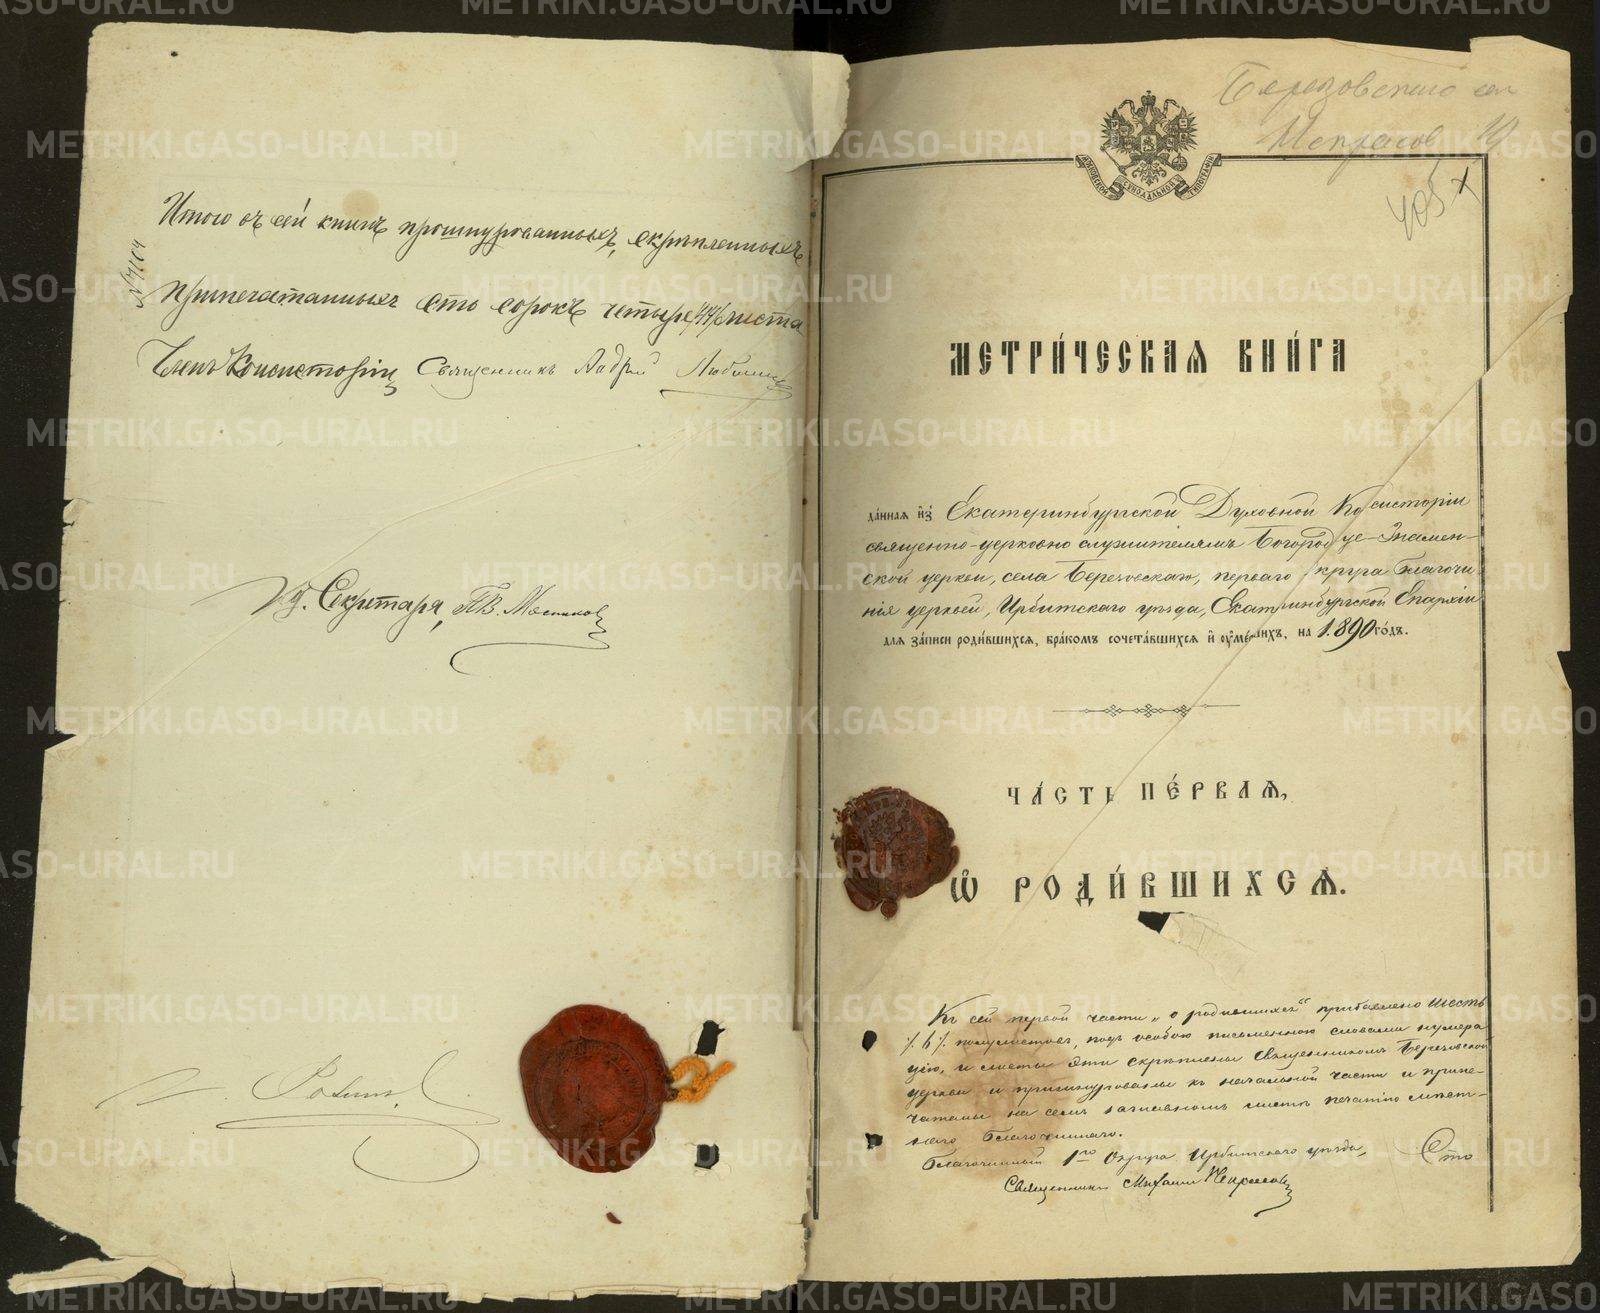 Итого въ сей книгѣ прошнурованныхъ, скрѣпленныхъ
припечатанныхъ сто сорокъ четыре /144/ листа
Членъ Консисторіи Священникъ
Секретаря,
МОСКОВСКОЙ СУНОДАЛЬНОЙ ТИПОГРАФІИ
Березовскаго
405
МЕТРИ́ЧЕСКАЯ КНИ́ГА
да́нная и҆з̾ Екатеринбургской Духовной Консисторіи
священно-церковно служителямъ Богородице-Знамен-
ской церкви, села Березовскаго, перваго округа благочи-
нія церквей, Ирбитскаго уѣзда, Екатеринбургской Епархіи
для за́писи роди́вшихся, бра́комъ сочета́вшихся и҆ ᲂу҆ме́ршихъ, на 1890 го́дъ.
ЧА́СТЬ ПЕ́РВАЯ,
Ѽ РОДИ́ВШИХСЯ.
Къ сей первой части „о родившихся“ прибавлено шесть
/.6/. полулистовъ, подъ особою письменною словами нумера
ціею, и листы эти скрѣплены Священникомъ Березовской
церкви и пришнурованы къ начальной части и припе-
чатаны на семъ заглавномъ листѣ печатію мѣст-
наго Благочиннаго.
Благочинный 1го Округа Ирбитскаго уѣзда, Сто
Священникъ Михаилъ
METRIKI.GASO-URAL.RU